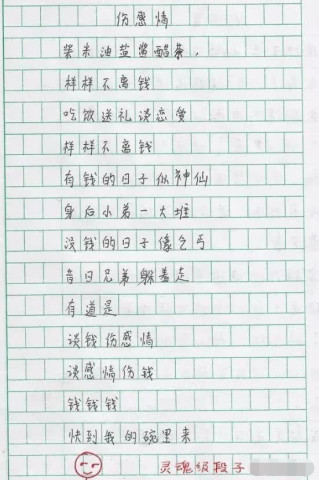 伤感情
柴米油盐酱醋茶,
样样不离钱
吃饭送礼谈恋爱
样样不离钱
有钱的日子似神仙
身后小弟一大堆
没钱的日子像乞丐
昔日兄弟躲着走
有道是
谈钱伤感情
谈感情伤钱
钱钱钱
快到我的碗里来
灵魂级段子